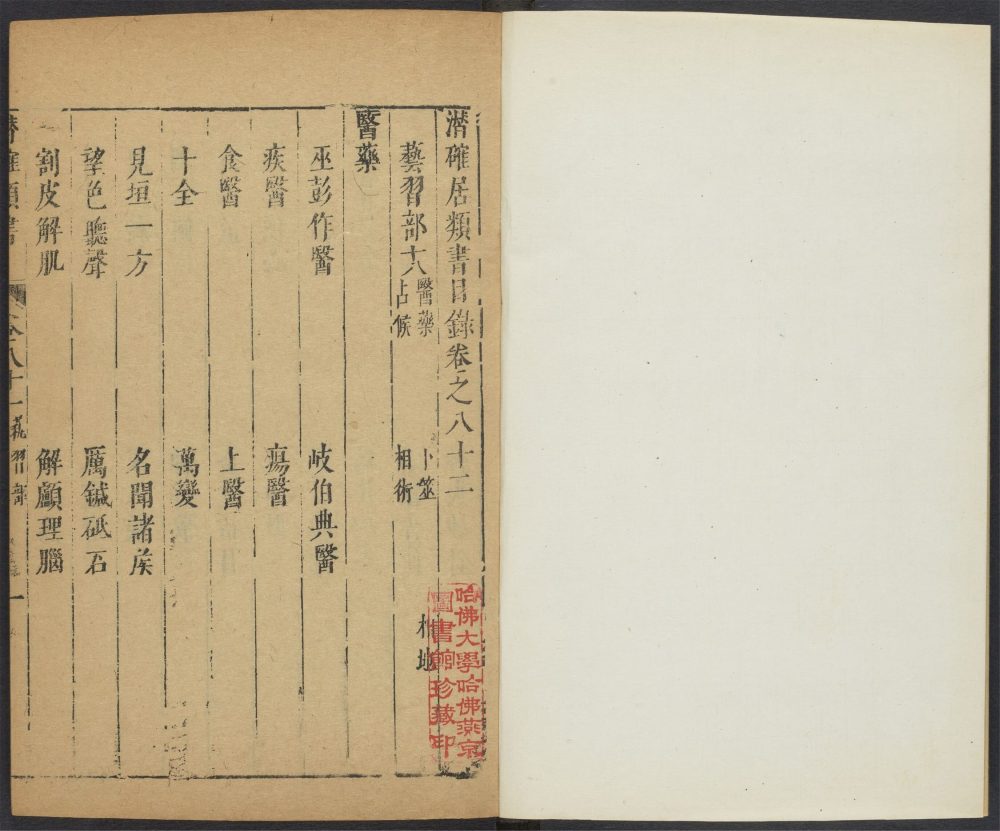 潜確居類書目錄卷之八十二
藝習部十八 醫藥 卜筮 相地
占候 相術
醫藥
巫彭作醫 岐伯典醫
疾醫 瘍醫
食醫 上醫
十全 萬變
見垣一方 名聞諸侯
望色聽聲 厲鍼砥石
割皮解肌 解顱理腦
類書 卷八十二 藝習部 一
哈佛大學哈佛燕京
圖書館珍藏印